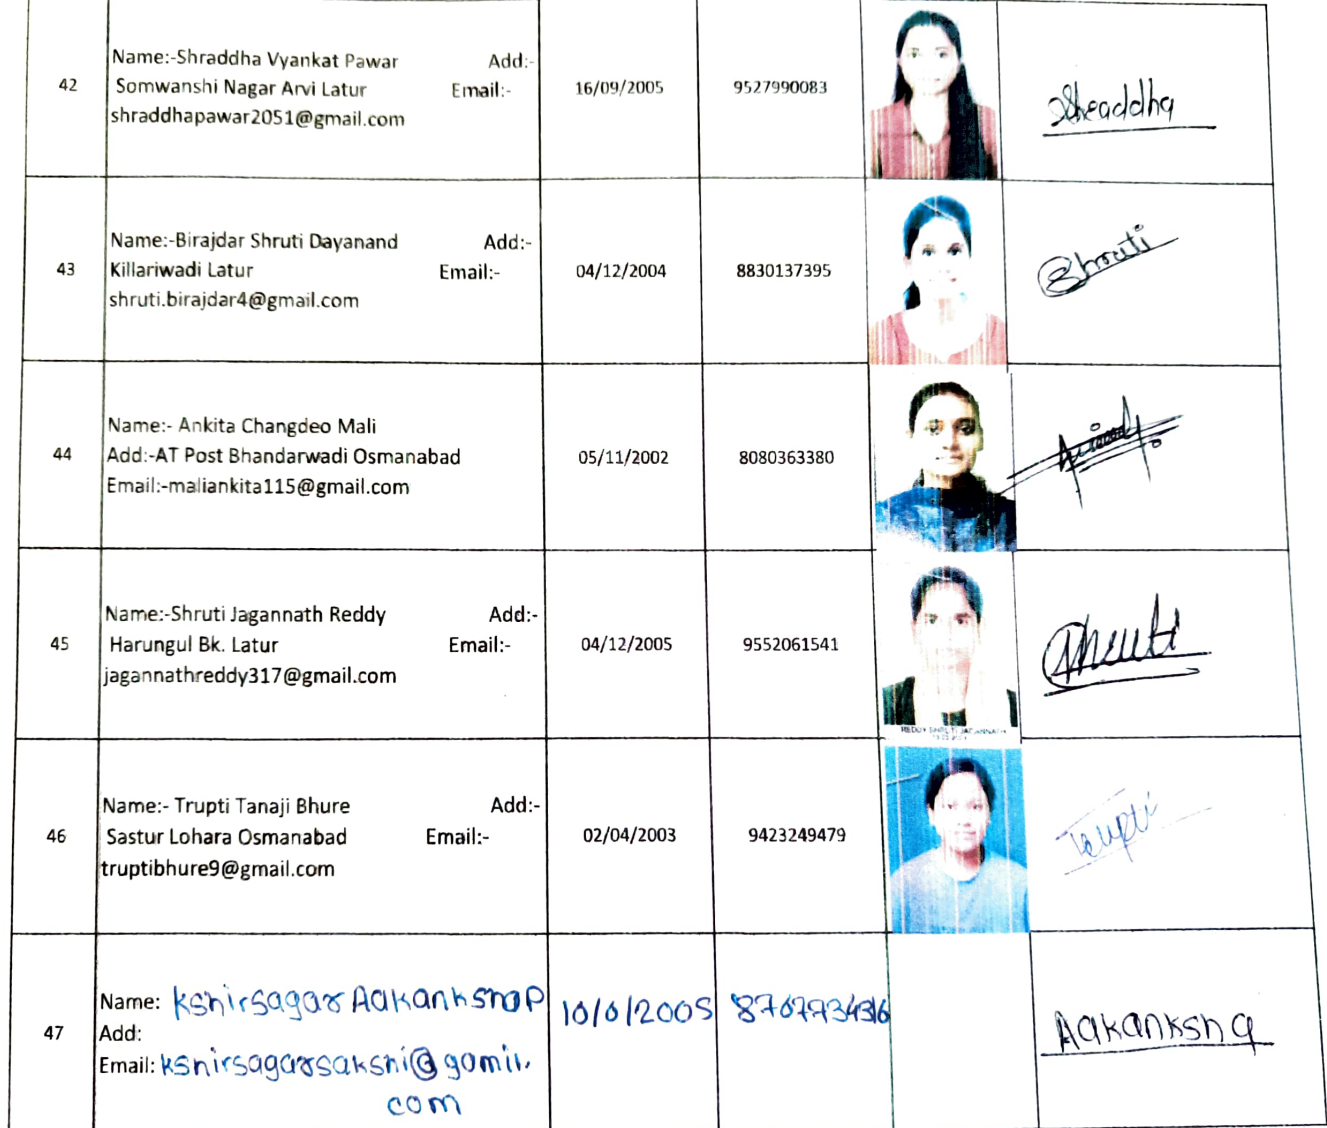 42
Name:-Shraddha Vyankat Pawar Add:-
Somwanshi Nagar Arvi Latur Email:-
shraddhapawar2051@gmail.com
16/09/2005
9527990083
Shraddha
43
Name:-Birajdar Shruti Dayanand Add:-
Killariwadi Latur Email:-
shruti.birajdar4@gmail.com
04/12/2004
8830137395
Shruti
44
Name:- Ankita Changdeo Mali
Add:-AT Post Bhandarwadi Osmanabad
Email:-maliankita115@gmail.com
05/11/2002
8080363380
45
Name:-Shruti Jagannath Reddy Add:-
Harungul Bk. Latur Email:-
jagannathreddy317@gmail.com
04/12/2005
9552061541
REDDY SHRUTI JAGANNATH
Shruti
46
Name:- Trupti Tanaji Bhure Add:-
Sastur Lohara Osmanabad Email:-
truptibhure9@gmail.com
02/04/2003
9423249479
Trupti
47
Name: Kshirsagar Aakanksha P
Add:
Email: kshirsagarsakshi@gomil.
com
Aakanksha